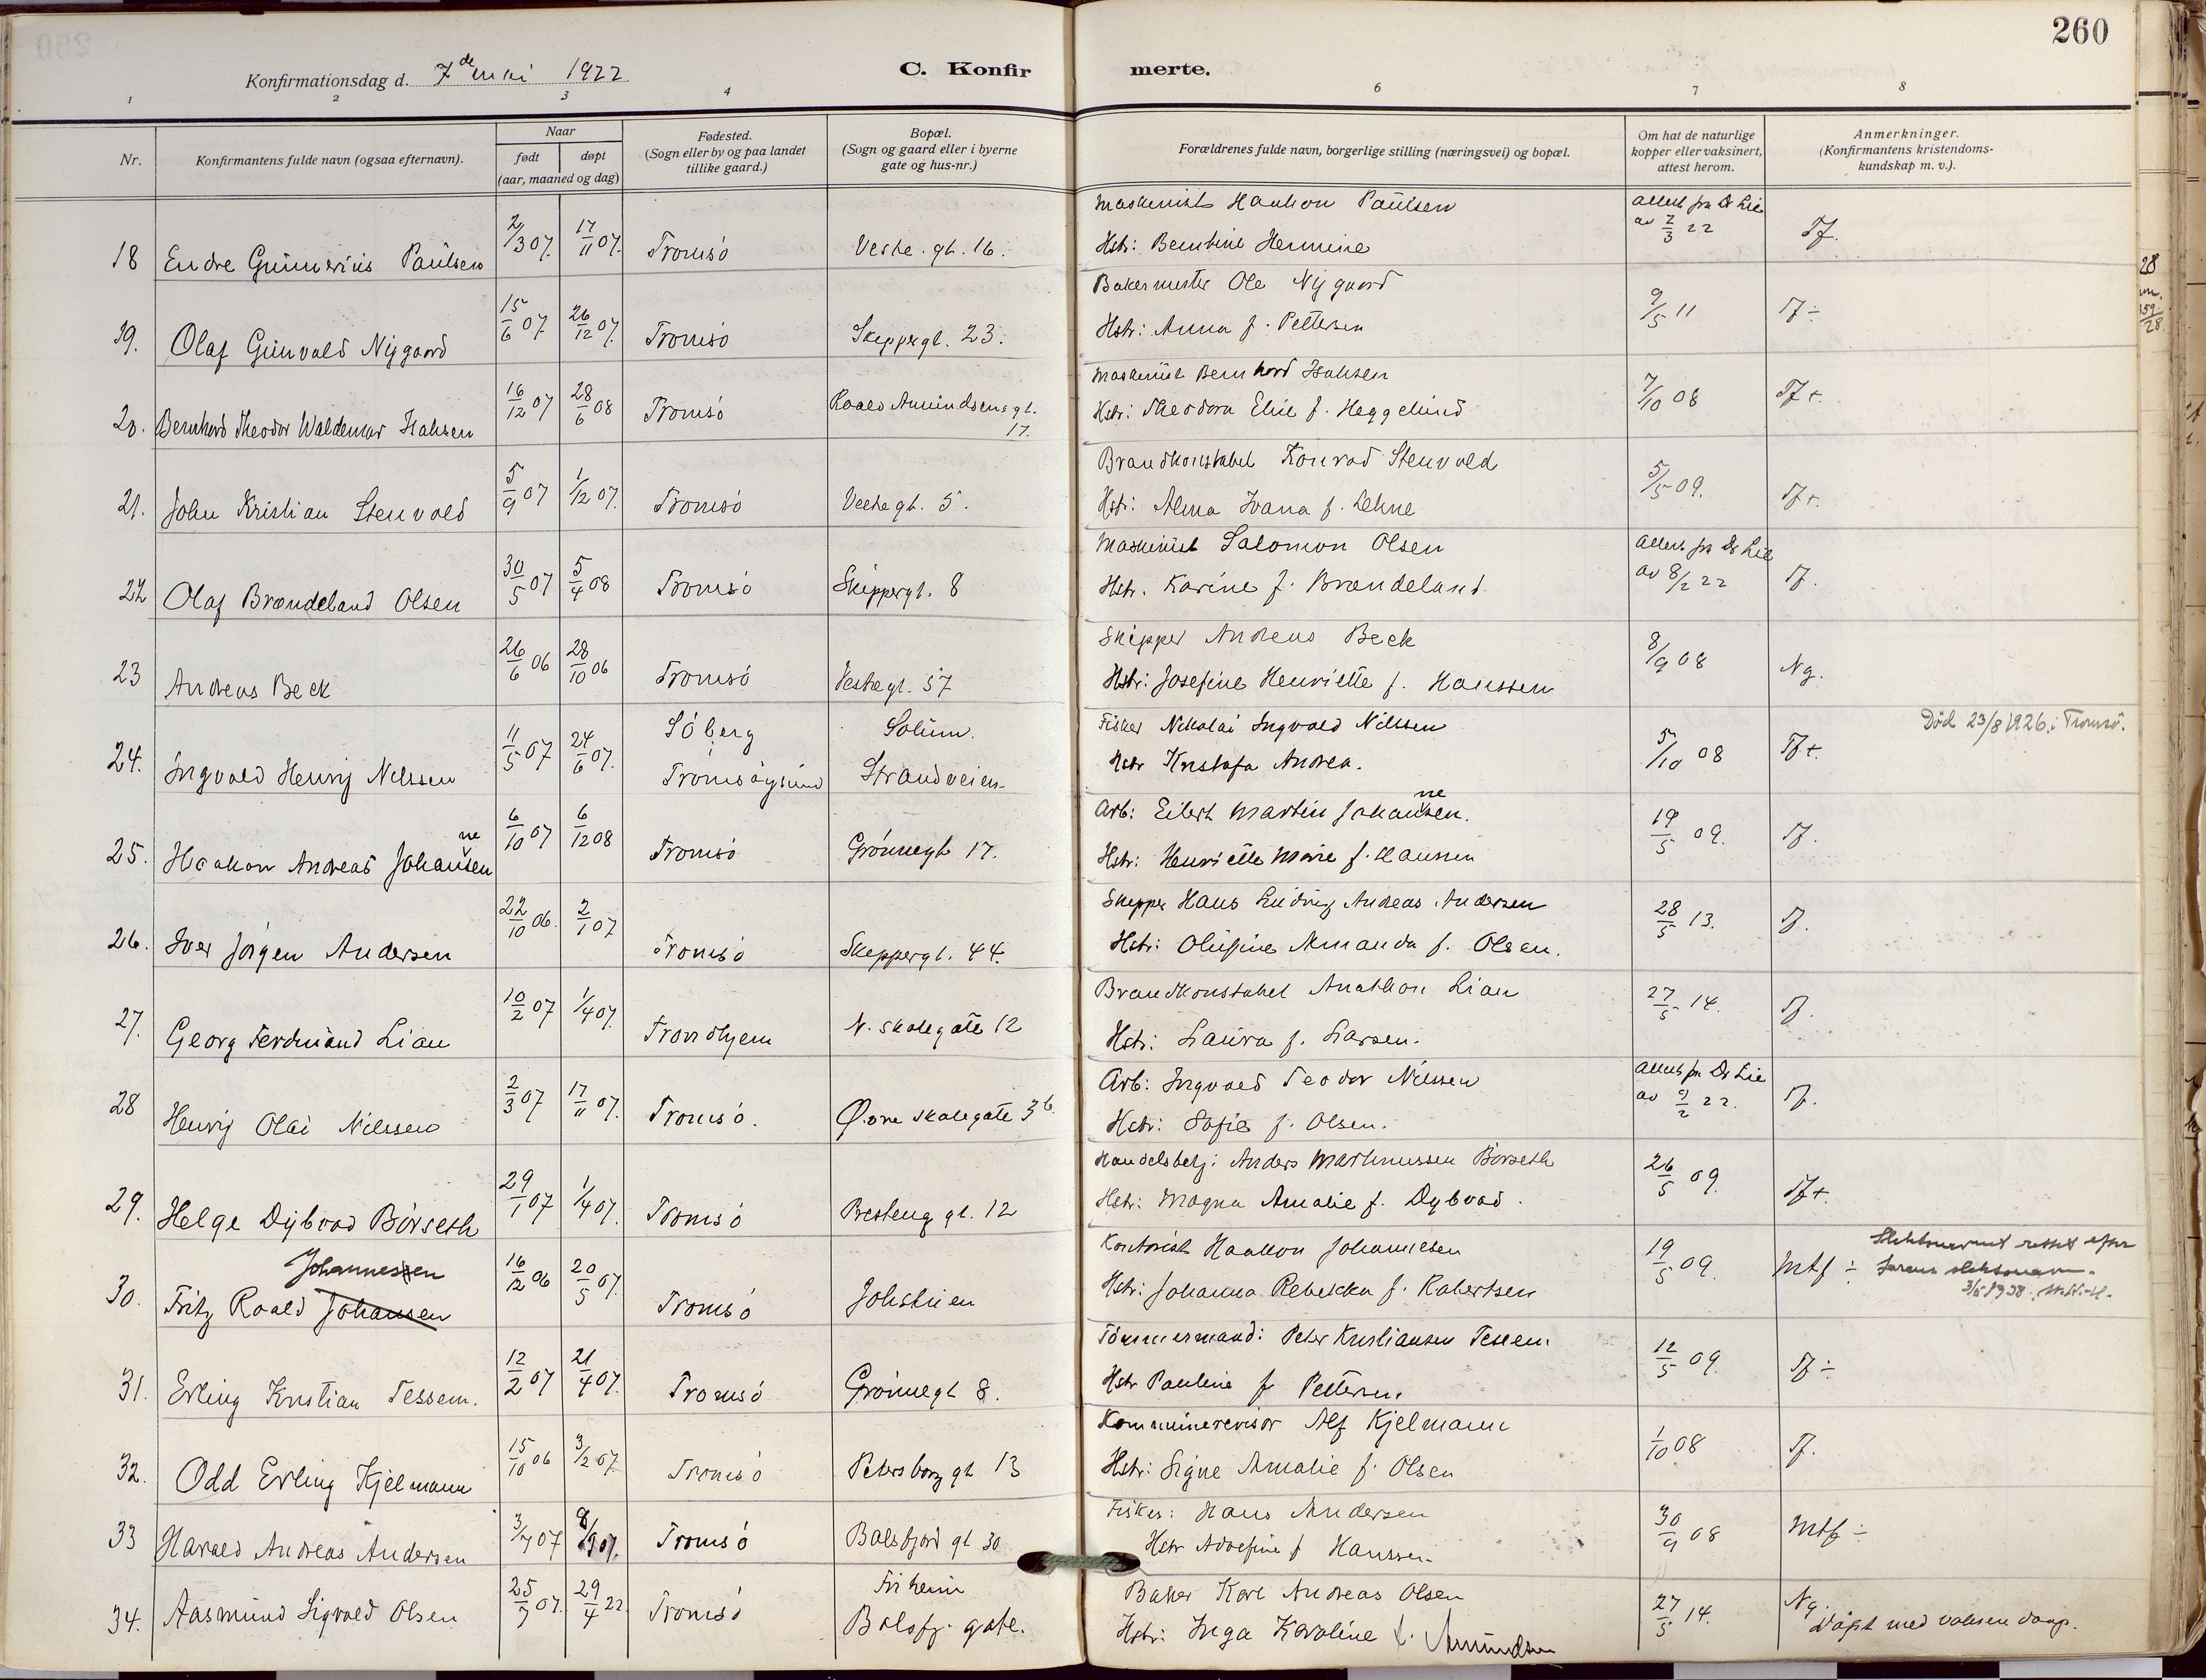 260
Konfirmationsdag d. 7de mai 1922 C. Konfir merte.
1 2 3 4 6 7 8
Nr. Konfirmantens fulde navn (ogsaa efternavn). Naar født døpt (aar, maaned og dag) Fødested. (Sogn eller by og paa landet tillike gaard.) Bopæl. (Sogn og gaard eller i byerne gate og hus-nr.) Forældrenes fulde navn, borgerlige stilling (næringsvei) og bopæl. Om hat de naturlige kopper eller vaksinert, attest herom. Anmerkninger. (Konfirmantens kristendoms-kundskap m. v.).
Maskinist Haakon Paulsen Attest fra Dr Lie
18 Endre Gunnerius Paulsen 2/3 07. 17/11 07. Tromsö Vestre. gt. 16. Hstr: Berntine Hermine av 2/3 22 Tf.
Bakermester Ole Nygaard
19. Olaf Gunvald Nygaard 15/6 07 26/12 07. Tromsö Skippergt. 23. Hstr: Anna f. Pettersen 9/5 11 Tf ÷
Maskinist Bernhard Isaksen
20. Bernhard Theodor Waldemar Isaksen 16/12 07 28/6 08 Tromsö Roald Amundsens gt. 17. Hstr: Theodora Elise f. Heggelund 7/10 08 Tf +
Brandkonstabel Konrad Stenvold
21. John Kristian Stenvold 5/9 07 1/12 07. Tromsö Vestregt. 5. Hstr: Alma Ivana f. Lehne 5/5 09. Tf +.
Maskinist Salomon Olsen Attest fra Dr Lie
22 Olaf Brændeland Olsen 30/5 07 5/4 08 Tromsö Skippergt. 8 Hstr. Karine f. Brændeland av 8/2 22 Tf.
Skipper Andreas Beck
23 Andreas Beck 26/6 06 28/10 06 Tromsö Vestregt. 57 Hstr: Josefine Henriette f. Hanssen 8/9 08 Ng.
Söberg i Solum. Fisker Nikolai Ingvald Nilssen Död 23/8 1926 i Tromsö.
24. Ingvald Henrij Nilssen 11/5 07 24/6 07. Tromsöysund Strandveien Hstr Kristofa Andrea. 5/10 08 Tf +.
Arb: Eilert Martin Johannesen.
25. Haakon Andreas Johannesen 6/10 07 6/12 08 Tromsö Grönnegt 17. Hstr: Henriette Marie f. Hanssen 19/5 09. Tf.
Skipper Hans Ludvig Andreas Andersen
26. Iver Jörgen Andersen 22/10 06. 2/1 07 Tromsö Skippergt. 44. Hstr: Olufine Amanda f. Olsen. 28/5 13. Tf.
Brandkonstabel Anathon Lian
27. Georg Ferdinand Lian 10/2 07 1/4 07. Trondhjem N. Skolegate 12 Hstr: Laura f. Larsen. 27/5 14. Tf.
Arb: Ingvald Teodor Nilssen Attest fra Dr Lie
28 Henrij Olai Nilssen 2/3 07 17/11 07. Tromsö. Övre Skolegate 3b Hstr: Sofie f. Olsen. av 9/2 22. Tf.
Handelsbetj: Anders Martinussen Börseth
29. Helge Dybvad Börseth 29/1 07 1/4 07. Tromsö Besteng gt. 12 Hstr: Magna Amalie f. Dybvad. 26/5 09. Tf +.
Johannessen Kontorist Haakon Johannesen Slektsnavnet rettet efter
30. Fritz Roald Johansen 16/12 06 20/5 07. Tromsö Hstr: Johanna Rebekka f. Robertsen 19/5 09. Mtf ÷ farens slektsnavn.
1938
Tömmermand: Peter Kristiansen Tessem
31. Erling Kristian Tessem. 12/2 07 21/4 07. Tromsö Grönnegt 8. Hstr Pauline f Pettersen. 12/5 09. Tf ÷
Kommunerevisor Alf Kjelmann
32. Odd Erling Kjelmann 15/10 06 3/2 07. Tromsö Petersborg gt 13 Hstr: Signe Amalie f. Olsen 1/10 08 Tf.
Fisker: Hans Andersen
33 Harald Andreas Andersen 3/7 07 8/9 07. Tromsö Balsfjord gt 30 Hstr Adolfine f Hanssen 30/9 08 Mtf ÷
Friheim Baker Karl Andreas Olsen Ng.
34. Aasmund Sigvald Olsen 25/7 07. 29/4 22 Tromsö Balsfj. gate. Hstr: Inga Karoline f. Amundsen 27/5 14. Döpt med voksen daap.